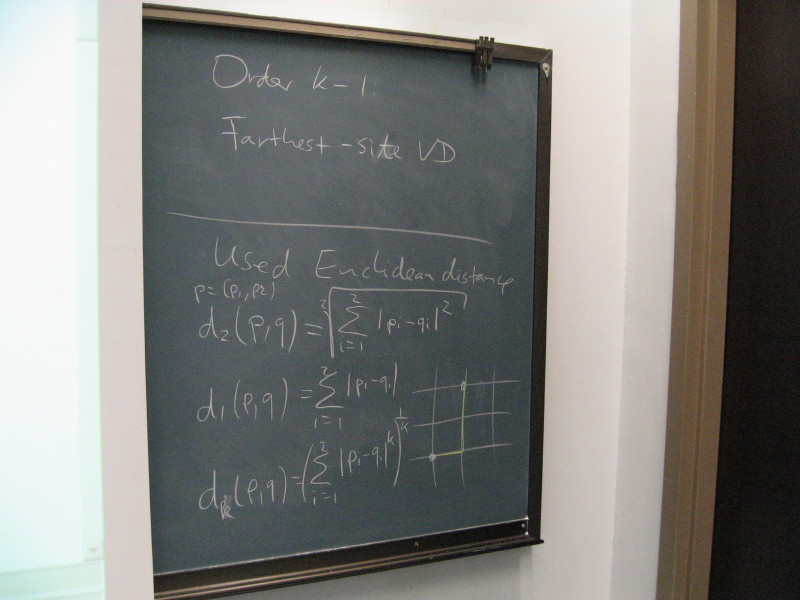 Order k-1:
Farthest-site VD
Used Euclidean distance
p=(p₁,p₂)
d₂(p,q) = ²√(∑_{i=1}^{2} |pi-qi|²)
d₁(p,q) = ∑_{i=1}^{2} |pi-qi|
d_k(p,q) = (∑_{i=1}^{2} |pi-qi|^k)^{1/k}